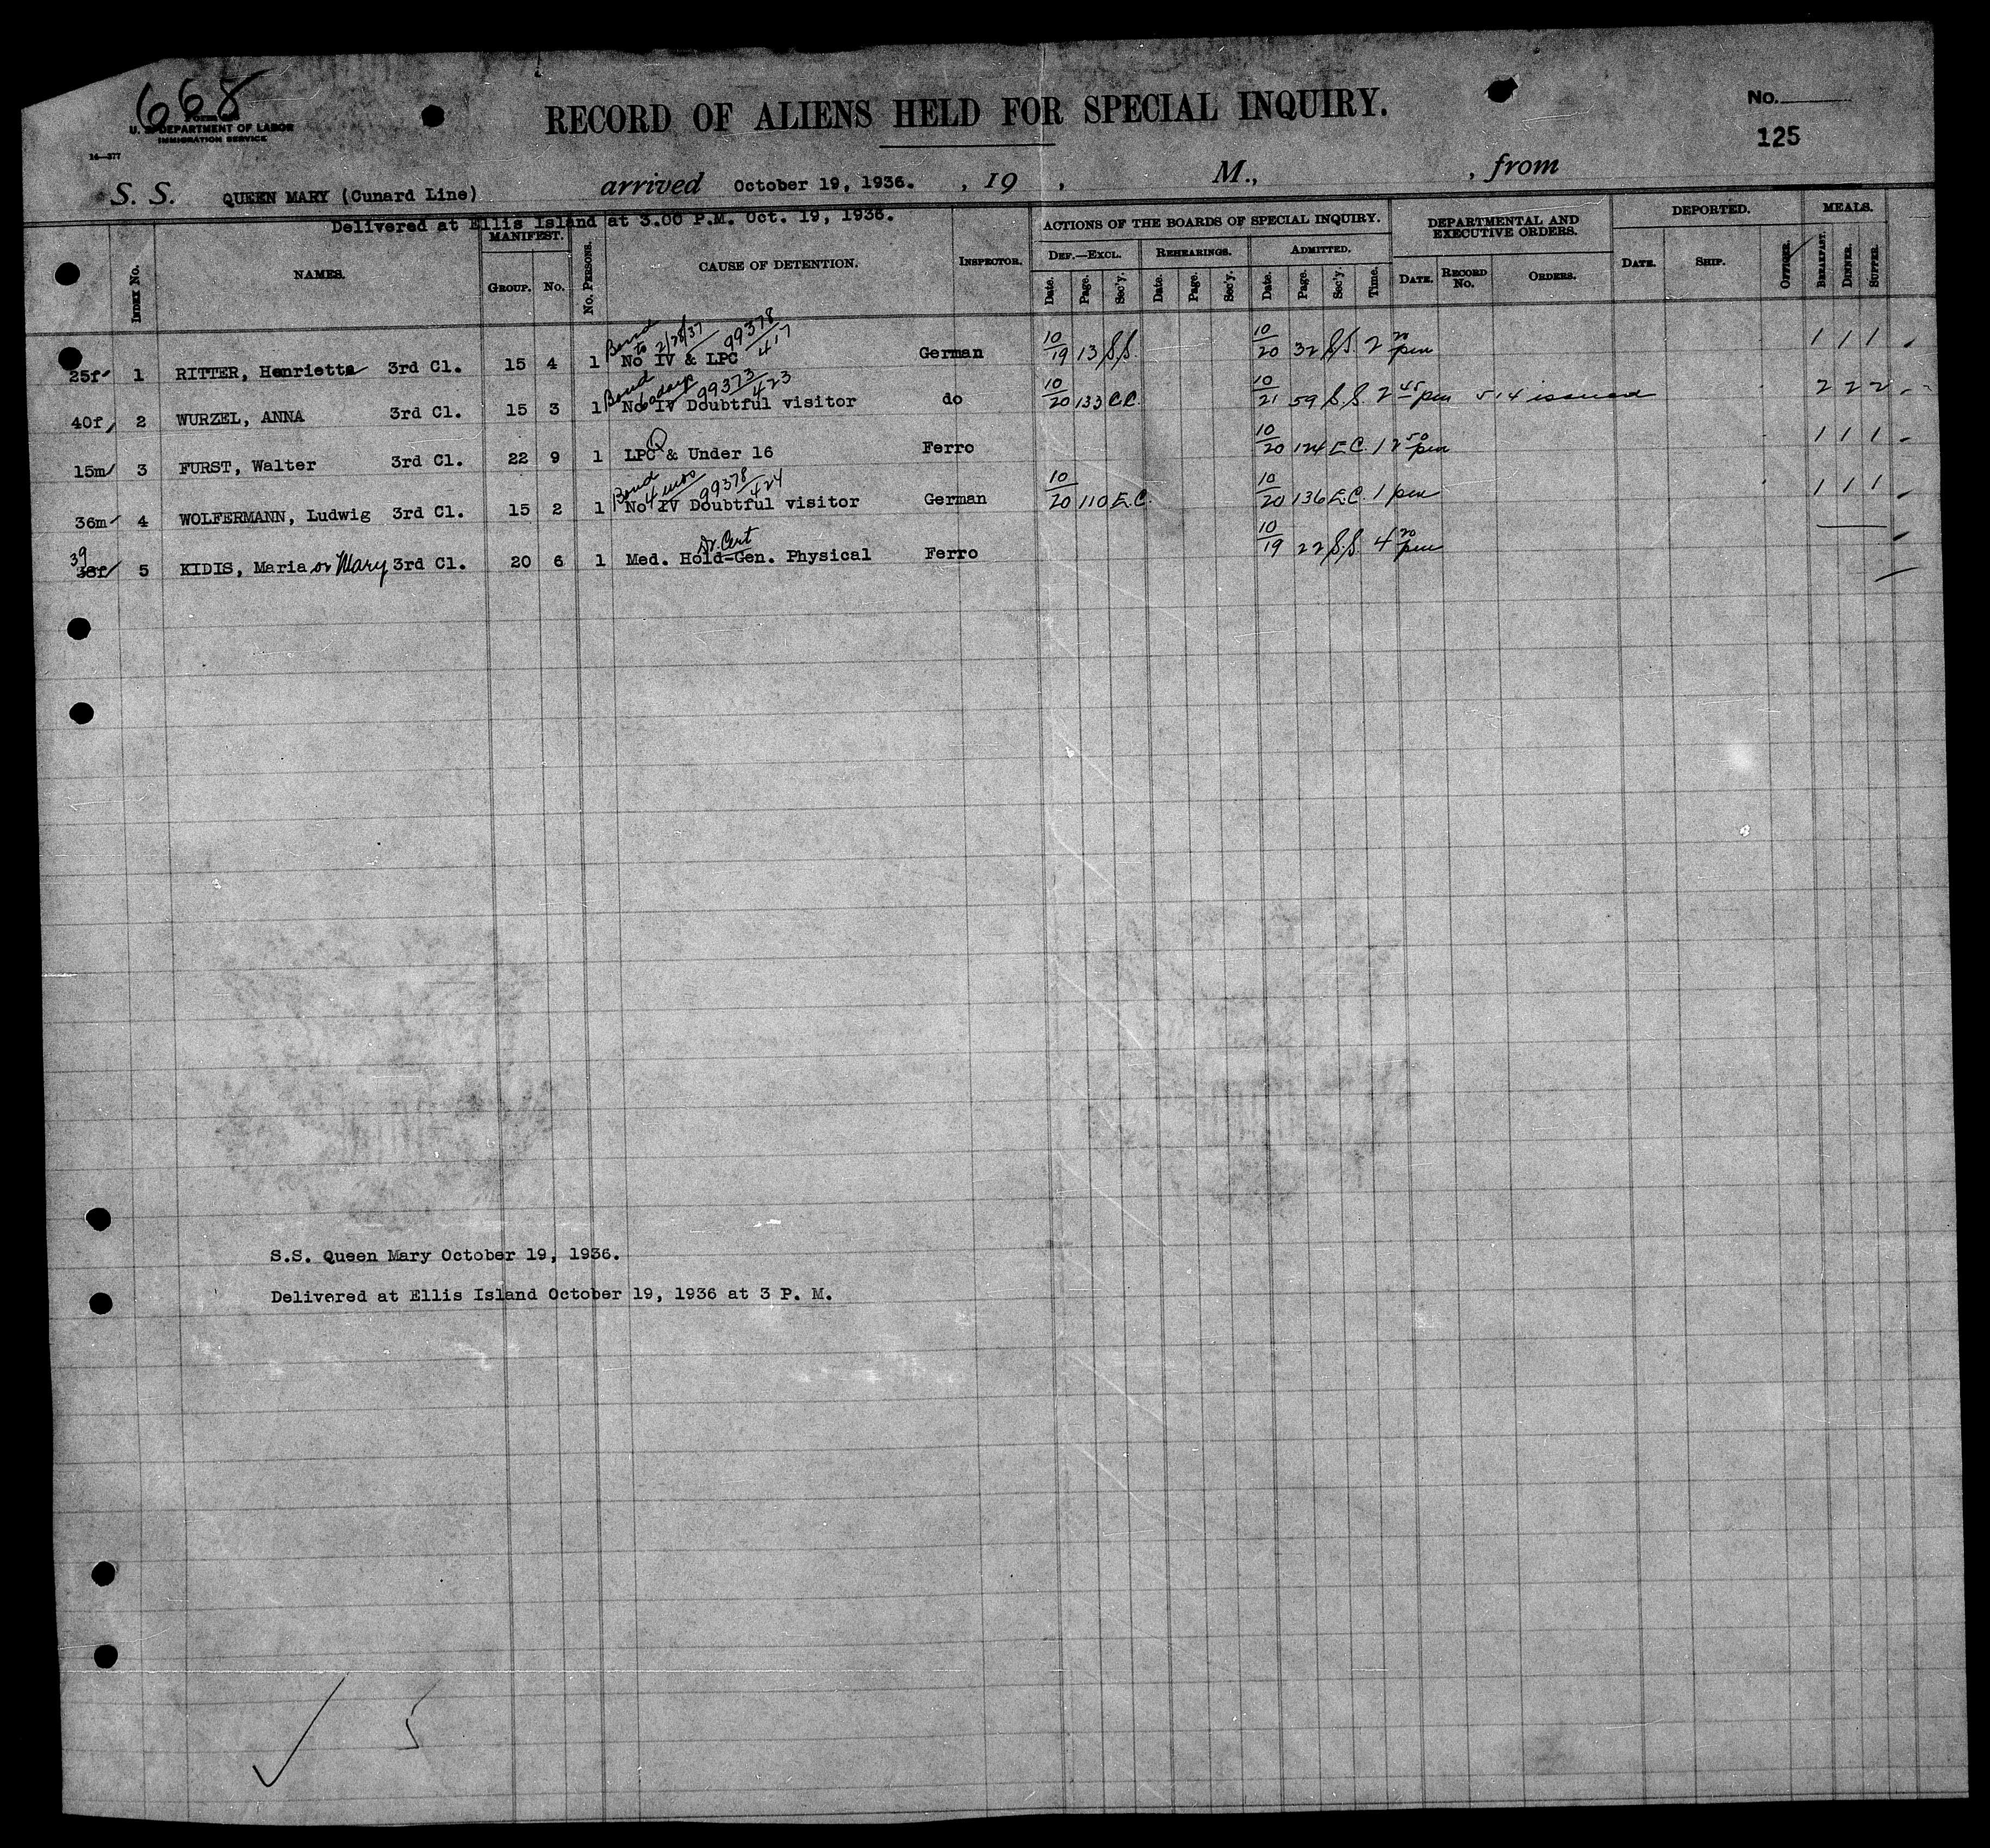 668
Form
U. S. DEPARTMENT OF LABOR
IMMIGRATION SERVICE
14—377
RECORD OF ALIENS HELD FOR SPECIAL INQUIRY.
No.
125
S. S. QUEEN MARY (Cunard Line) arrived October 19, 1936. , 19 , M., , from
Delivered at Ellis Island at 3.00 P.M. Oct. 19, 1936.
INDEX No. NAMES. MANIFEST. GROUP. No. No. PERSONS. CAUSE OF DETENTION. INSPECTOR. ACTIONS OF THE BOARDS OF SPECIAL INQUIRY. DEPARTMENTAL AND EXECUTIVE ORDERS. DEPORTED. MEALS.
DEF.—EXCL. REHEARINGS. ADMITTED.
Date. Page. Sec'y. Date. Page. Sec'y. Date. Page. Sec'y. Time. DATE. RECORD No. ORDERS. DATE. SHIP. OFFICER. BREAKFAST. DINNER. SUPPER.
Bond to 2/28/37 99378/417
25f 1 RITTER, Henrietta 3rd Cl. 15 4 1 No IV & LPC German 10/19 13 S.S. 10/20 32 S.S. 2 20 pm 1 1 1
Bond 60 days 99373/423
40f 2 WURZEL, ANNA 3rd Cl. 15 3 1 No IV Doubtful visitor do 10/20 133 E.C. 10/21 59 S.S. 2 45 pm 514 issued 2 2 2
15m 3 FURST, Walter 3rd Cl. 22 9 1 LPC & Under 16 Ferro 10/20 124 E.C. 12 50 pm 1 1 1
Bond 4 mos 99378/424
36m 4 WOLFERMANN, Ludwig 3rd Cl. 15 2 1 No IV Doubtful visitor German 10/20 110 E.C. 10/20 136 E.C. 1 pm 1 1 1
Dr. Cert
39 38f 5 KIDIS, Maria or Mary 3rd Cl. 20 6 1 Med. Hold-Gen. Physical Ferro 10/19 22 S.S. 4 20 pm
S.S. Queen Mary October 19, 1936.
Delivered at Ellis Island October 19, 1936 at 3 P. M.
5